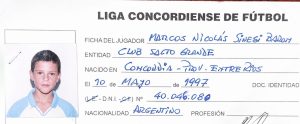 LIGA CONCORDIENSE DE FÚTBOL
FICHA DEL JUGADOR MARCOS NICOLÁS SINESI
ENTIDAD CLUB SALTO GRANDE
NACIDO EN CONCORDIA - PROV. ENTRE RIOS
EL 10 DE MAYO DE 1997 DOC. IDENTIDAD
D.N.I. Nº 40.046.080
NACIONALIDAD ARGENTINO